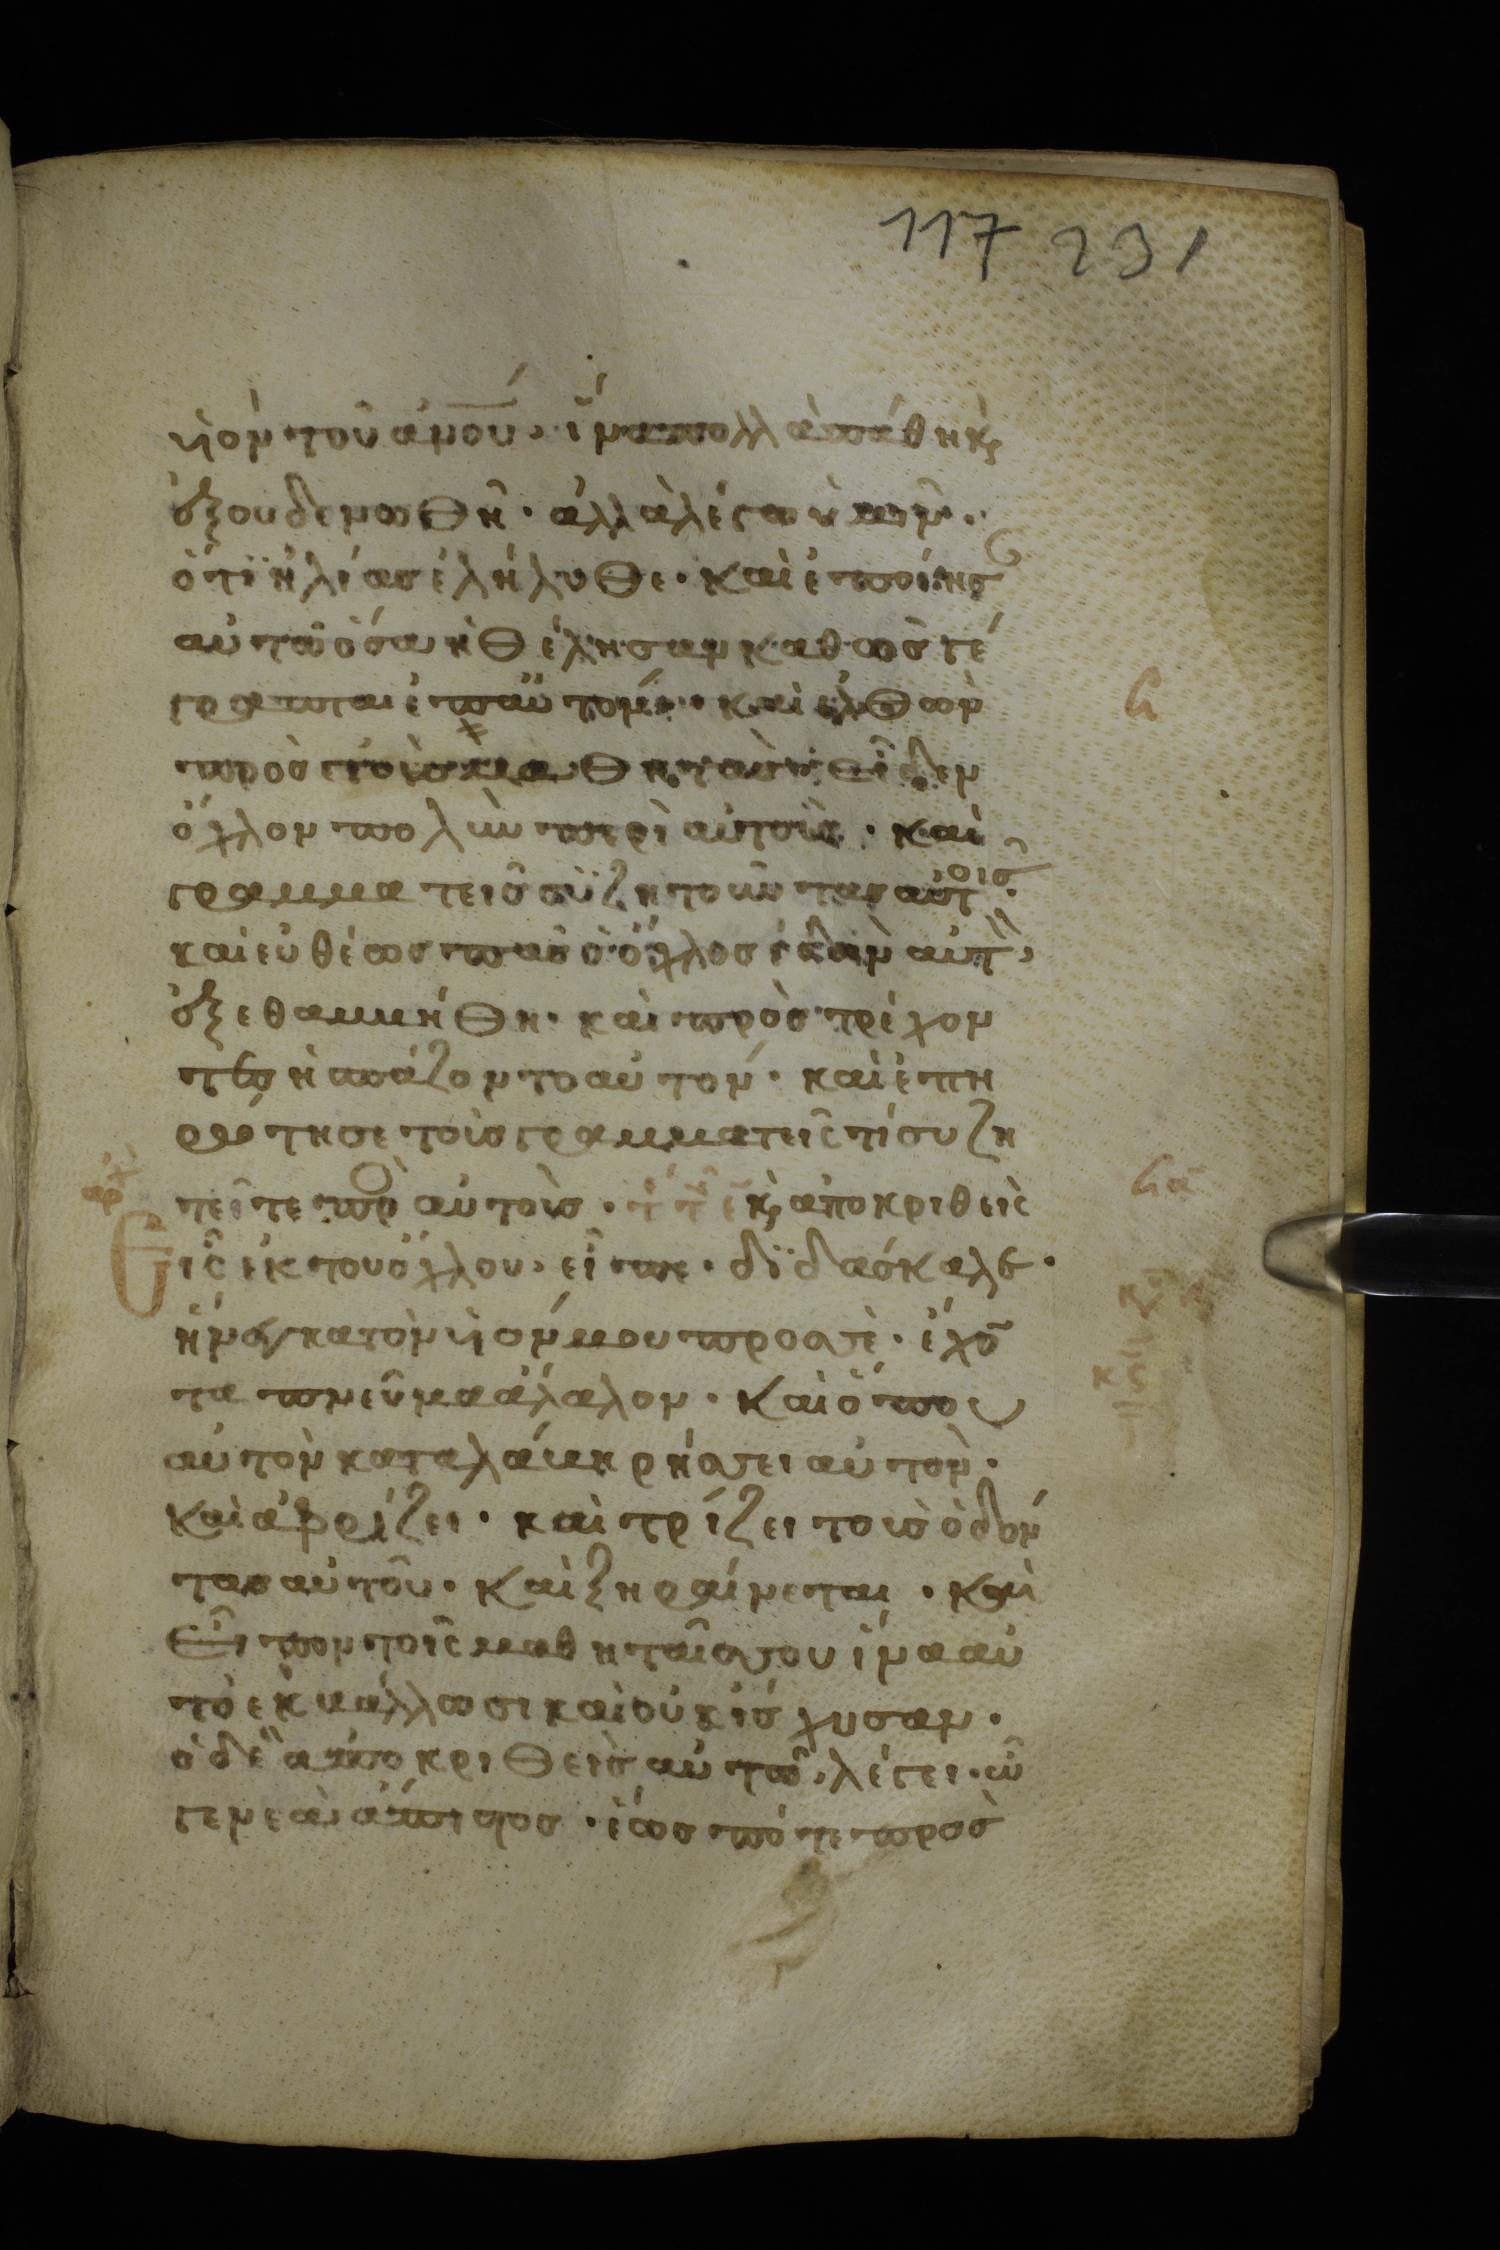 117 231
υἱὸν τοῦ ἀνου· ἵνα πολλὰ πάθη κ(αὶ)
ἐξουδενωθῆ· ἀλλὰ λέγω ὑμῖν·
ὅτι ἠλίας ἐλήλυθε· καὶ ἐποίησ
αὐτῶ ὅσα ἠθέλησαν καθὼς γέ
γραπται ἐπ αὐτόν· καὶ ἐλθὼν
πρὸς τοὺς μαθητὰς εἶδεν
ὄχλον πολὺν περὶ αὐτούς· καὶ
γραμματεῖς συζητοῦντας αὐτοῖς·
καὶ εὐθέως πᾶς ὁ ὄχλος ἰδὼν αὐτὸν
ἐξεθαμβήθη· καὶ προστρέχον
τες ἠσπάζοντο αὐτόν· καὶ ἐπη
ρώτησε τοὺς γραμματεῖς τί συζη
τεῖτε πρὸ αὐτούς· κ(αὶ) ἀποκριθεὶς
Εἷς ἐκ τοῦ ὄχλου· εἶπε· διδάσκαλε·
ἤνεγκα τὸν υἱόν μου πρὸς σὲ· ἔχο
τα πνεῦμα ἄλαλον· καὶ ὅπου
αὐτὸν καταλάβη ρήσσει αὐτὸν·
καὶ ἀφρίζει· καὶ τρίζει τοὺς ὀδόν
τας αὐτοῦ· καὶ ξηραίνεται· καὶ
εἶπον τοῖς μαθηταῖς σου ἵνα αὐ
τὸ ἐκβάλλωσι καὶ οὐκ ἴσχυσαν·
ὁ δὲ ἀποκριθεὶς αὐτῶ λέγει· ὦ
γενεὰ ἄπιστος· ἕως πότε πρὸς